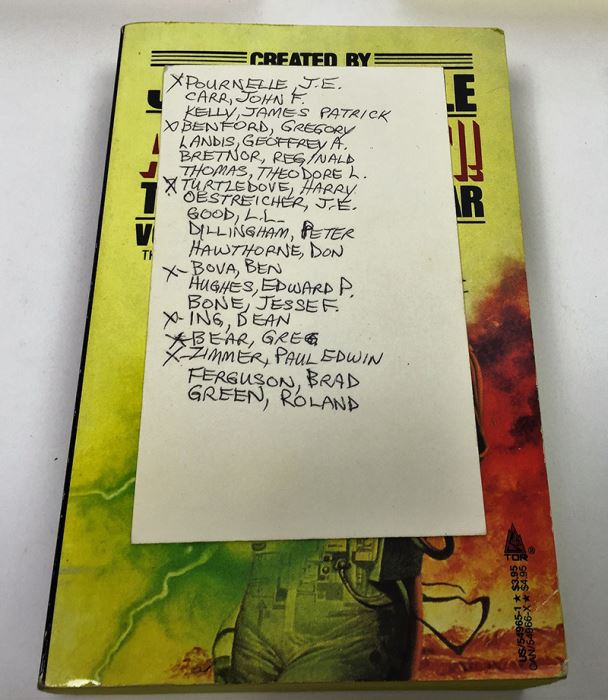 CREATED BY
X POURNELLE, J.E.
CARR, JOHN F.
KELLY, JAMES PATRICK
X BENFORD, GREGORY
LANDIS, GEOFFREY A.
BRETNOR, REGINALD
THOMAS, THEODORE L.
X TURTLEDOVE, HARRY
OESTREICHER, J.E.
GOOD, L.L.
DILLINGHAM, PETER
HAWTHORNE, DON
X- BOVA, BEN
HUGHES, EDWARD P.
BONE, JESSE F.
X- ING, DEAN
X BEAR, GREG
X- ZIMMER, PAUL EDWIN
FERGUSON, BRAD
GREEN, ROLAND
TOR®
US/54965-1 ★ $3.95
CAN/54966-X ★ $4.95